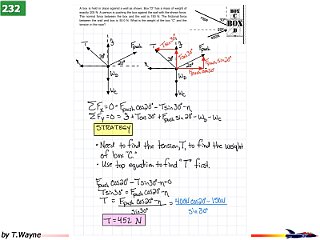 232
A box is held in place against a wall as shown. Box "D" has a mass of weight of
exactly 200 N. A person is pushing the box against the wall with the shown force.
The normal force between the box and the wall is 150 N. The frictional force
between the wall and box is 30.0 N. What is the weight of the box "C" and the
tension in the rope?
BOX C
BOX D
T
3
Fpush
n
W_D
W_C
Tcos30°
Tsin30°
Fpush sin20°
Fpush cos20°
ΣFx = 0 = Fpush cos20° - Tsin30° - n
ΣFy = 0 = 3 + Tcos30° + Fpush sin20° - W_D - W_C
STRATEGY
• Need to find the tension, T, to find the weight
of box "C."
• Use top equation to find "T" first.
Fpush cos20° - Tsin30° - n = 0
Tsin30° = Fpush cos20° - n
T = Fpush cos20° - n / sin30° = 400N cos20° - 150N / sin30°
T = 452 N
by T.Wayne